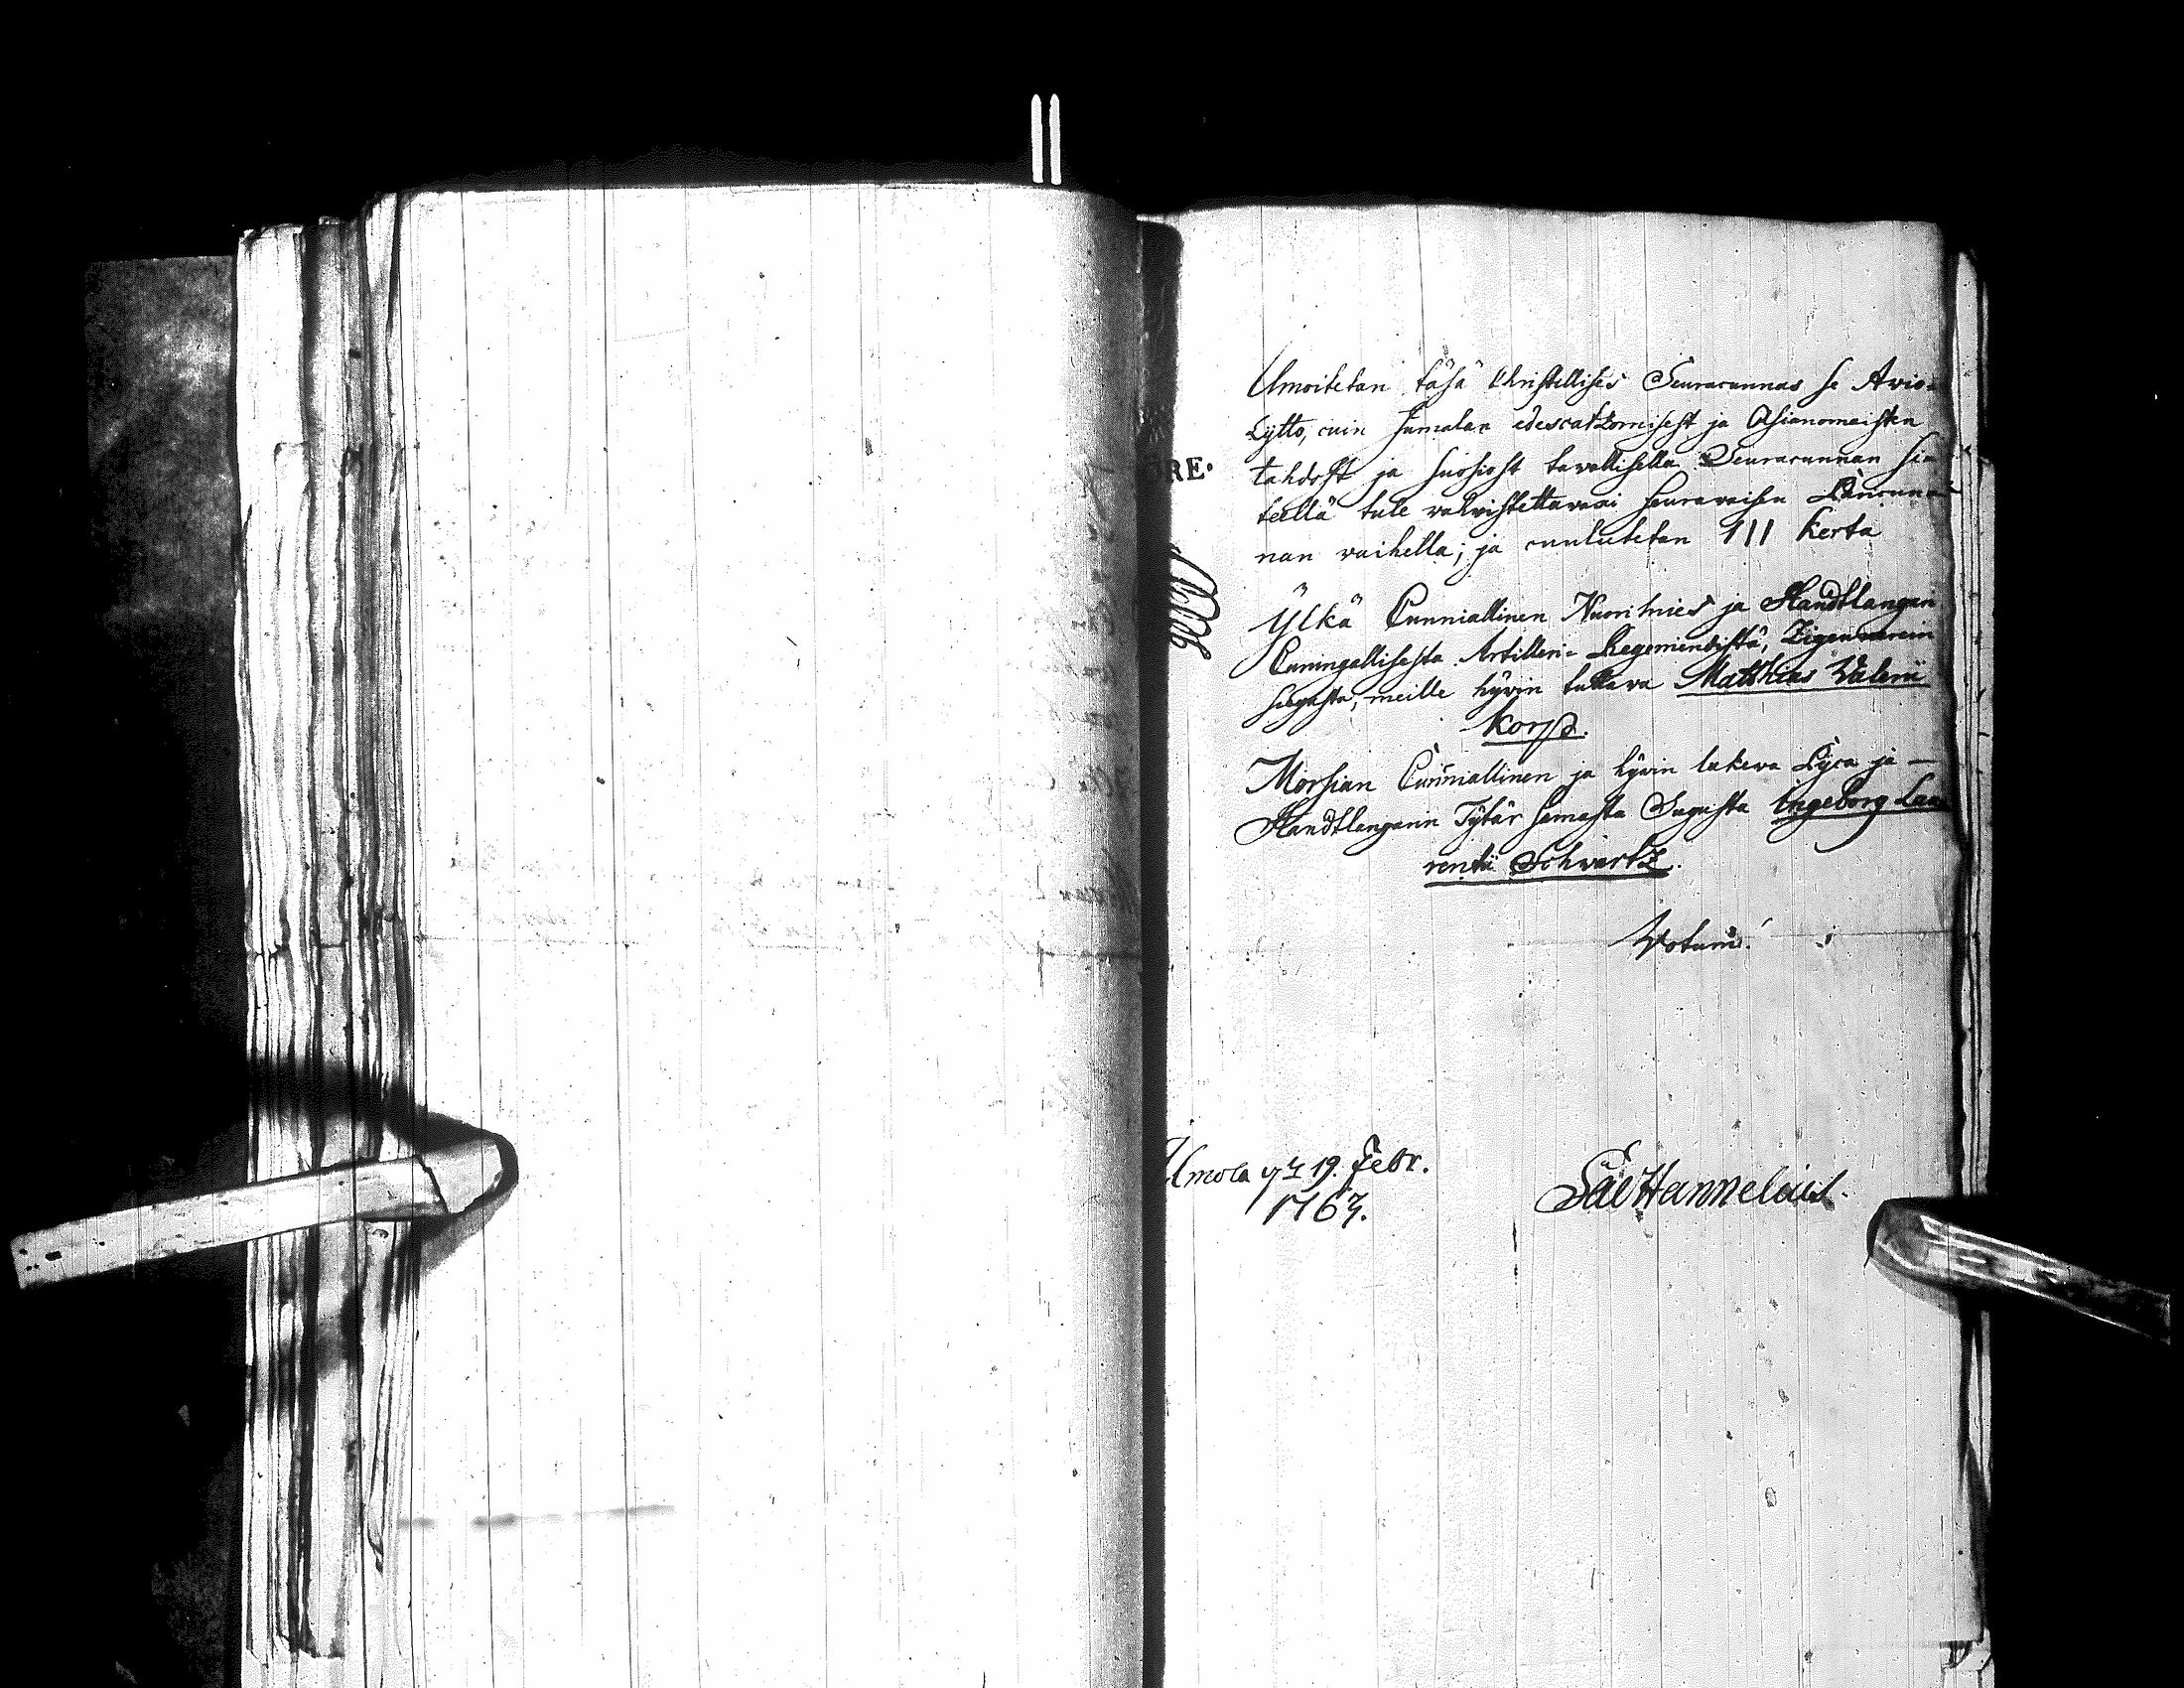 Ilmoitetan täsä Christellises Seuracunnas se Avio-
Lijtto, cuin Jumalan edescatzomisest ja Asianomaisten
tahdost ja suosiost tavallisella Seuracunnan sia-
teellä tule vahvistettavaxi seuravaisen Paricun-
nan vaihella; ja cuulutetan III kerta
ÖRE.
Ylkä Cunniallinen Nuorimies ja Handtlangari
Cuningallisesta Artilleri-Regementistä, Zigenarein
sugusta, meille hyvin tuttava Matthias Valerii
Korp.
Morsian Cunniallinen ja hyvin lukeva Pijca ja
Handtlangarin Tytär samasta Sugusta Ingeborg Lau-
rentii Schvartz.
Votum!
Ilmola 19. Febr.
1763.
Hannelius.